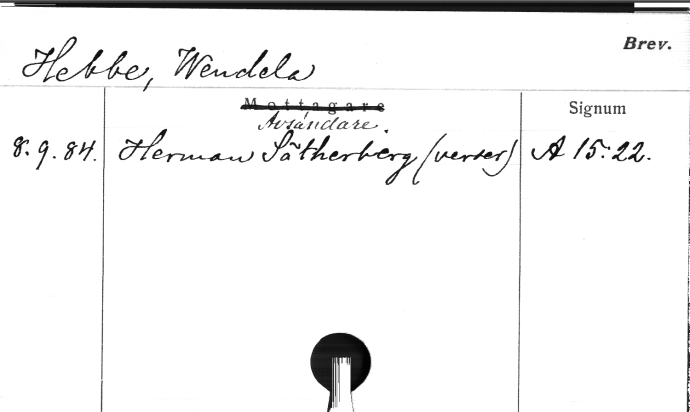 Brev.
Hebbe, Wendela
Mottagare
Signum
Avsändare.
8.9.84. Herman Sätherberg (verser) A 15:22.